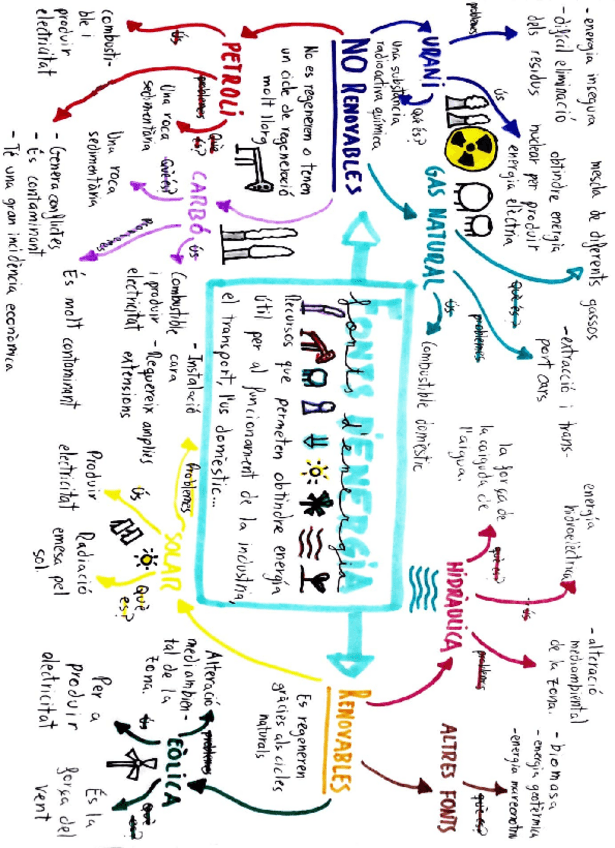 FONTS D'ENERGIA
fonts d'energia
Recursos que permeten obtindre energia
útil per al funcionament de la industria,
el transport, l'us domèstic...
NO RENOVABLES
No es regeneren o tenen
un cicle de regeneració
molt llarg
URANI
Què és?
Una substància
radioactiva química
Ús
obtindre energia
nuclear per produir
energia elèctria
problemes
- energia insegura
- difícil eliminació
dels residus
GAS NATURAL
Què és?
mescla de diferents
gassos
Ús
Combustible domèstic
problemes
- extracció i trans-
port cars
PETROLI
Què
és?
Una roca
sedimentària
Ús
combusti-
ble i
produir
electricitat
problemes
- Genera conflictes
- És contaminant
- Té una gran incidència econòmica
CARBÓ
Què és?
Una roca
sedimentària
Ús
Combustible
i produir
electricitat
Problemes
És molt contaminant
RENOVABLES
Es regeneren
gràcies als cicles
naturals
HIDRÀULICA
què és?
la força de
la caiguda de
l'aigua.
ús
energía
hidroelèctrica
problemes
- alteració
mediambiental
de la zona.
ALTRES FONTS
què és?
- biomasa
- energia geotèrmica
- energia mareomotriu
SOLAR
Què
es?
Radiació
emesa pel
sol.
Ús
Produir
electricitat
Problemes
- Instalació
cara
- Requereix amplies
extensions
EÒLICA
Què
es?
És la
força del
vent
Ús
Per a
produir
electricitat
problemes
Alteració
mediambien-
tal de la
zona.